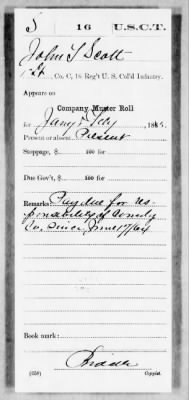 S 16 U.S.C.T.
John S Scott
Co. C, 16 Reg't U. S. Col'd Infantry.
Appears on
Company Muster Roll
for Jany & Feby, 1865.
Present or absent Present
Stoppage, $ 100 for
Due Gov't, $ 100 for
Remarks: Pay due for res-
ponsibility of Comdg
Co. since June 17/64
Book mark:
(858) Copyist.